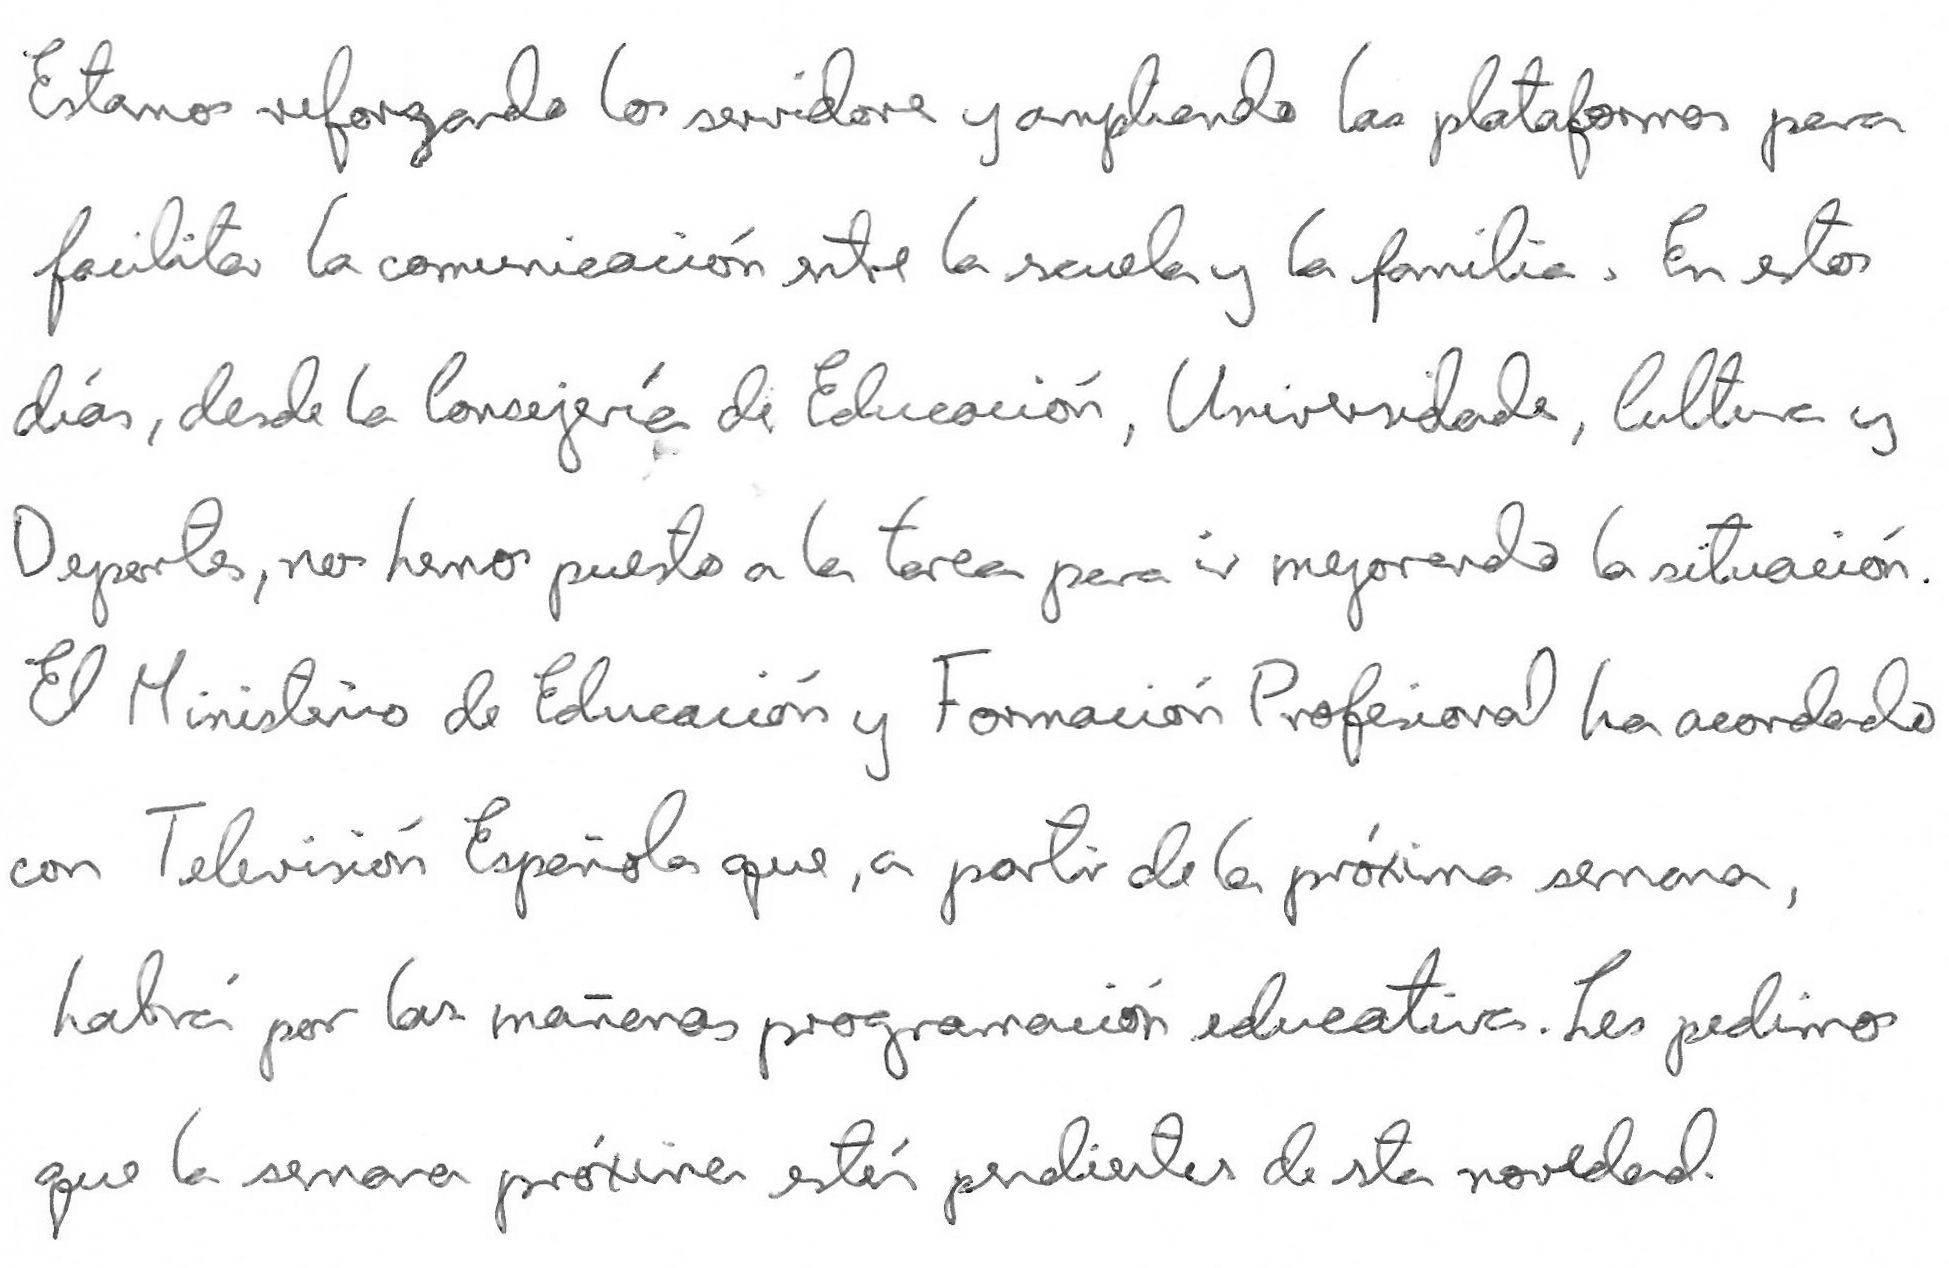 Estamos reforzando los servidores y ampliando las plataformas para
facilitar la comunicación entre la escuela y la familia. En estos
días, desde la Consejería de Educación, Universidades, Cultura y
Deportes, nos hemos puesto a la tarea para ir mejorando la situación.
El Ministerio de Educación y Formación Profesional ha acordado
con Televisión Española que, a partir de la próxima semana,
habrá por las mañanas programación educativa. Les pedimos
que la semana próxima estén pendientes de esta novedad.